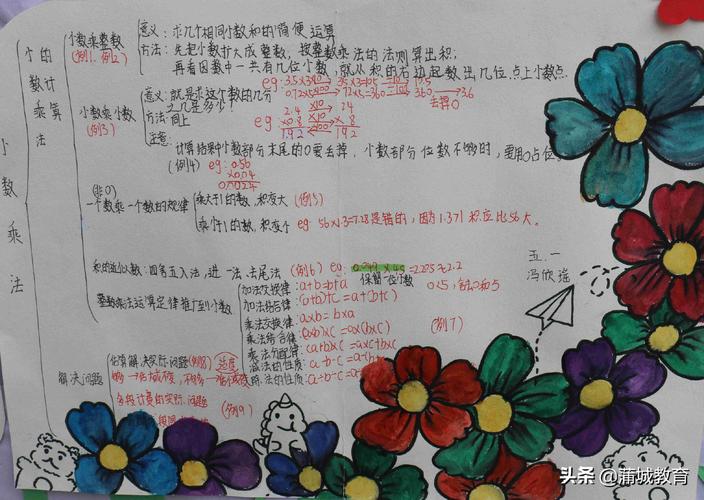 小数乘法
小数的计算乘法
小数乘整数
(例1、例2)
意义：求几个相同小数和的简便运算
方法：先把小数扩大成整数，按整数乘法的法则算出积；
再看因数中一共有几位小数，就从积的右边起数出几位，点上小数点.
小数乘小数
(例3)
意义：就是求这个数的几分之几是多少？
方法：同上
eg
2.4
×0.8
1.92
×10
24
× 8
192
注意：
计算结果中小数部分末尾的0要去掉，小数部分位数不够的，要用0占位
(例4) eg: 0.56
×0.04
0.0224
去掉0
(非0)
一个数乘一个数的规律
乘大于1的数，积变大 (例5)
乘小于1的数，积变小 eg: 56×1.3=7.28是错的，因为1.3>1 积应比56大。
积的近似数：四舍五入法，进一法、去尾法 (例6) eg:
保留一位小数
整数乘法运算定律推广到小数
加法交换律：a+b=b+a
加法结合律：(a+b)+c=a+(b+c)
乘法交换律：a×b=b×a
乘法结合律：(a×b)×c=a×(b×c)
乘法分配律：
减法的性质：a-b-c=
除法的性质：
(例7)
解决问题
估算解决实际问题(例8)
分段计费的实际问题
(例9)
五.一
冯欣瑶
头条@蒲城教育